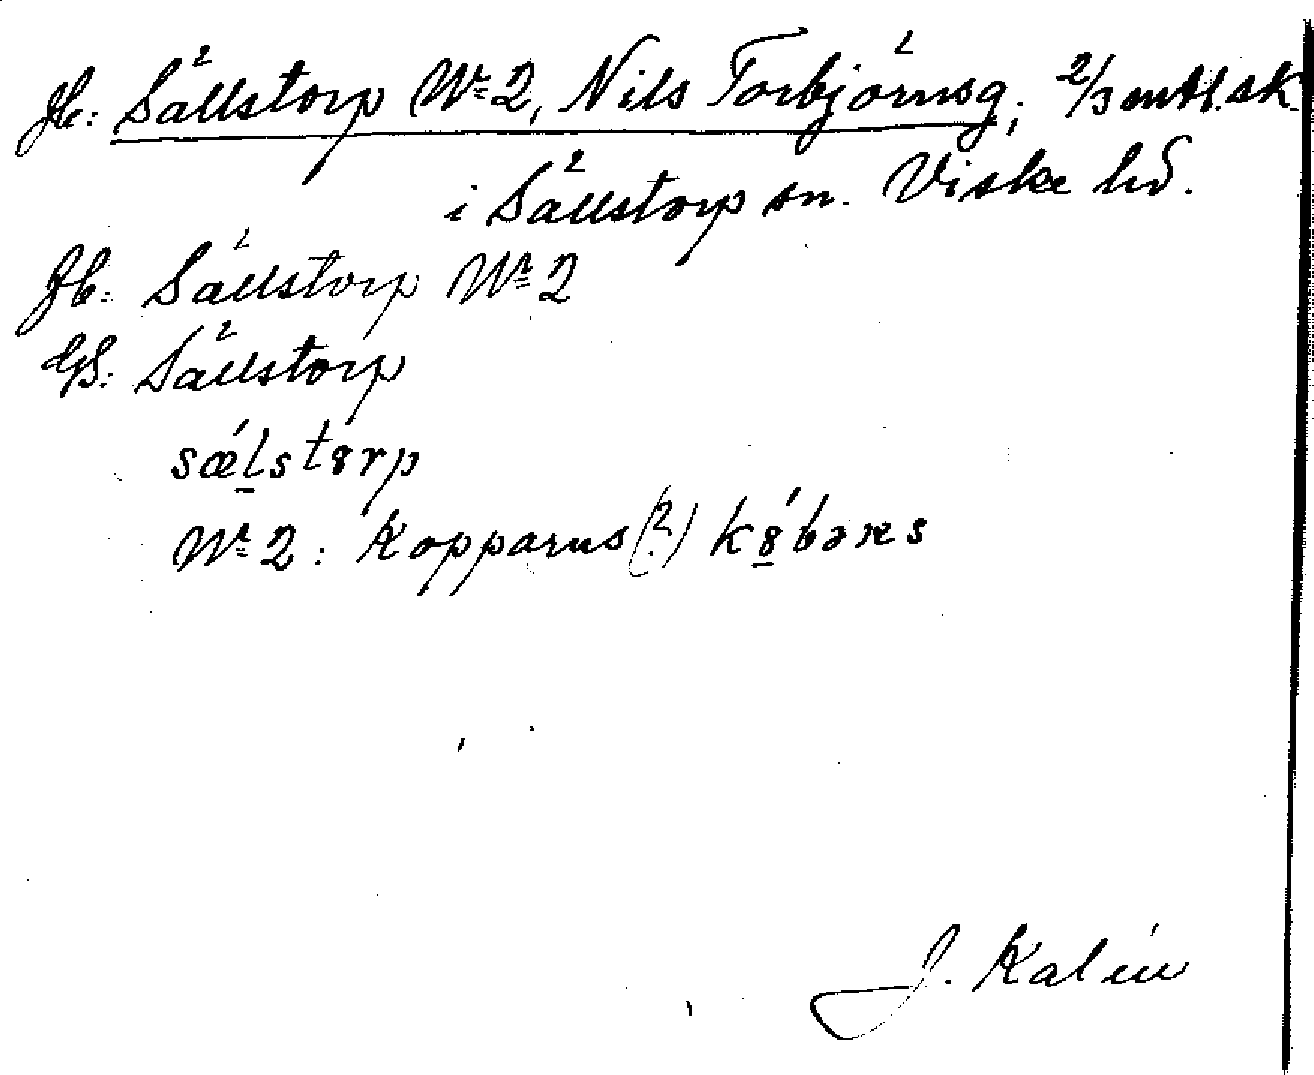 Jb: Sällstorp Nr 2, Nils Torbjörnsg; 2/3 mtl. sk.
i Sällstorp sn. Viske hd.
Jb: Sällstorp Nr 2
GS: Sällstorp
sǽlstɵrp
Nr 2: Kopparus(?)
J. Kalén